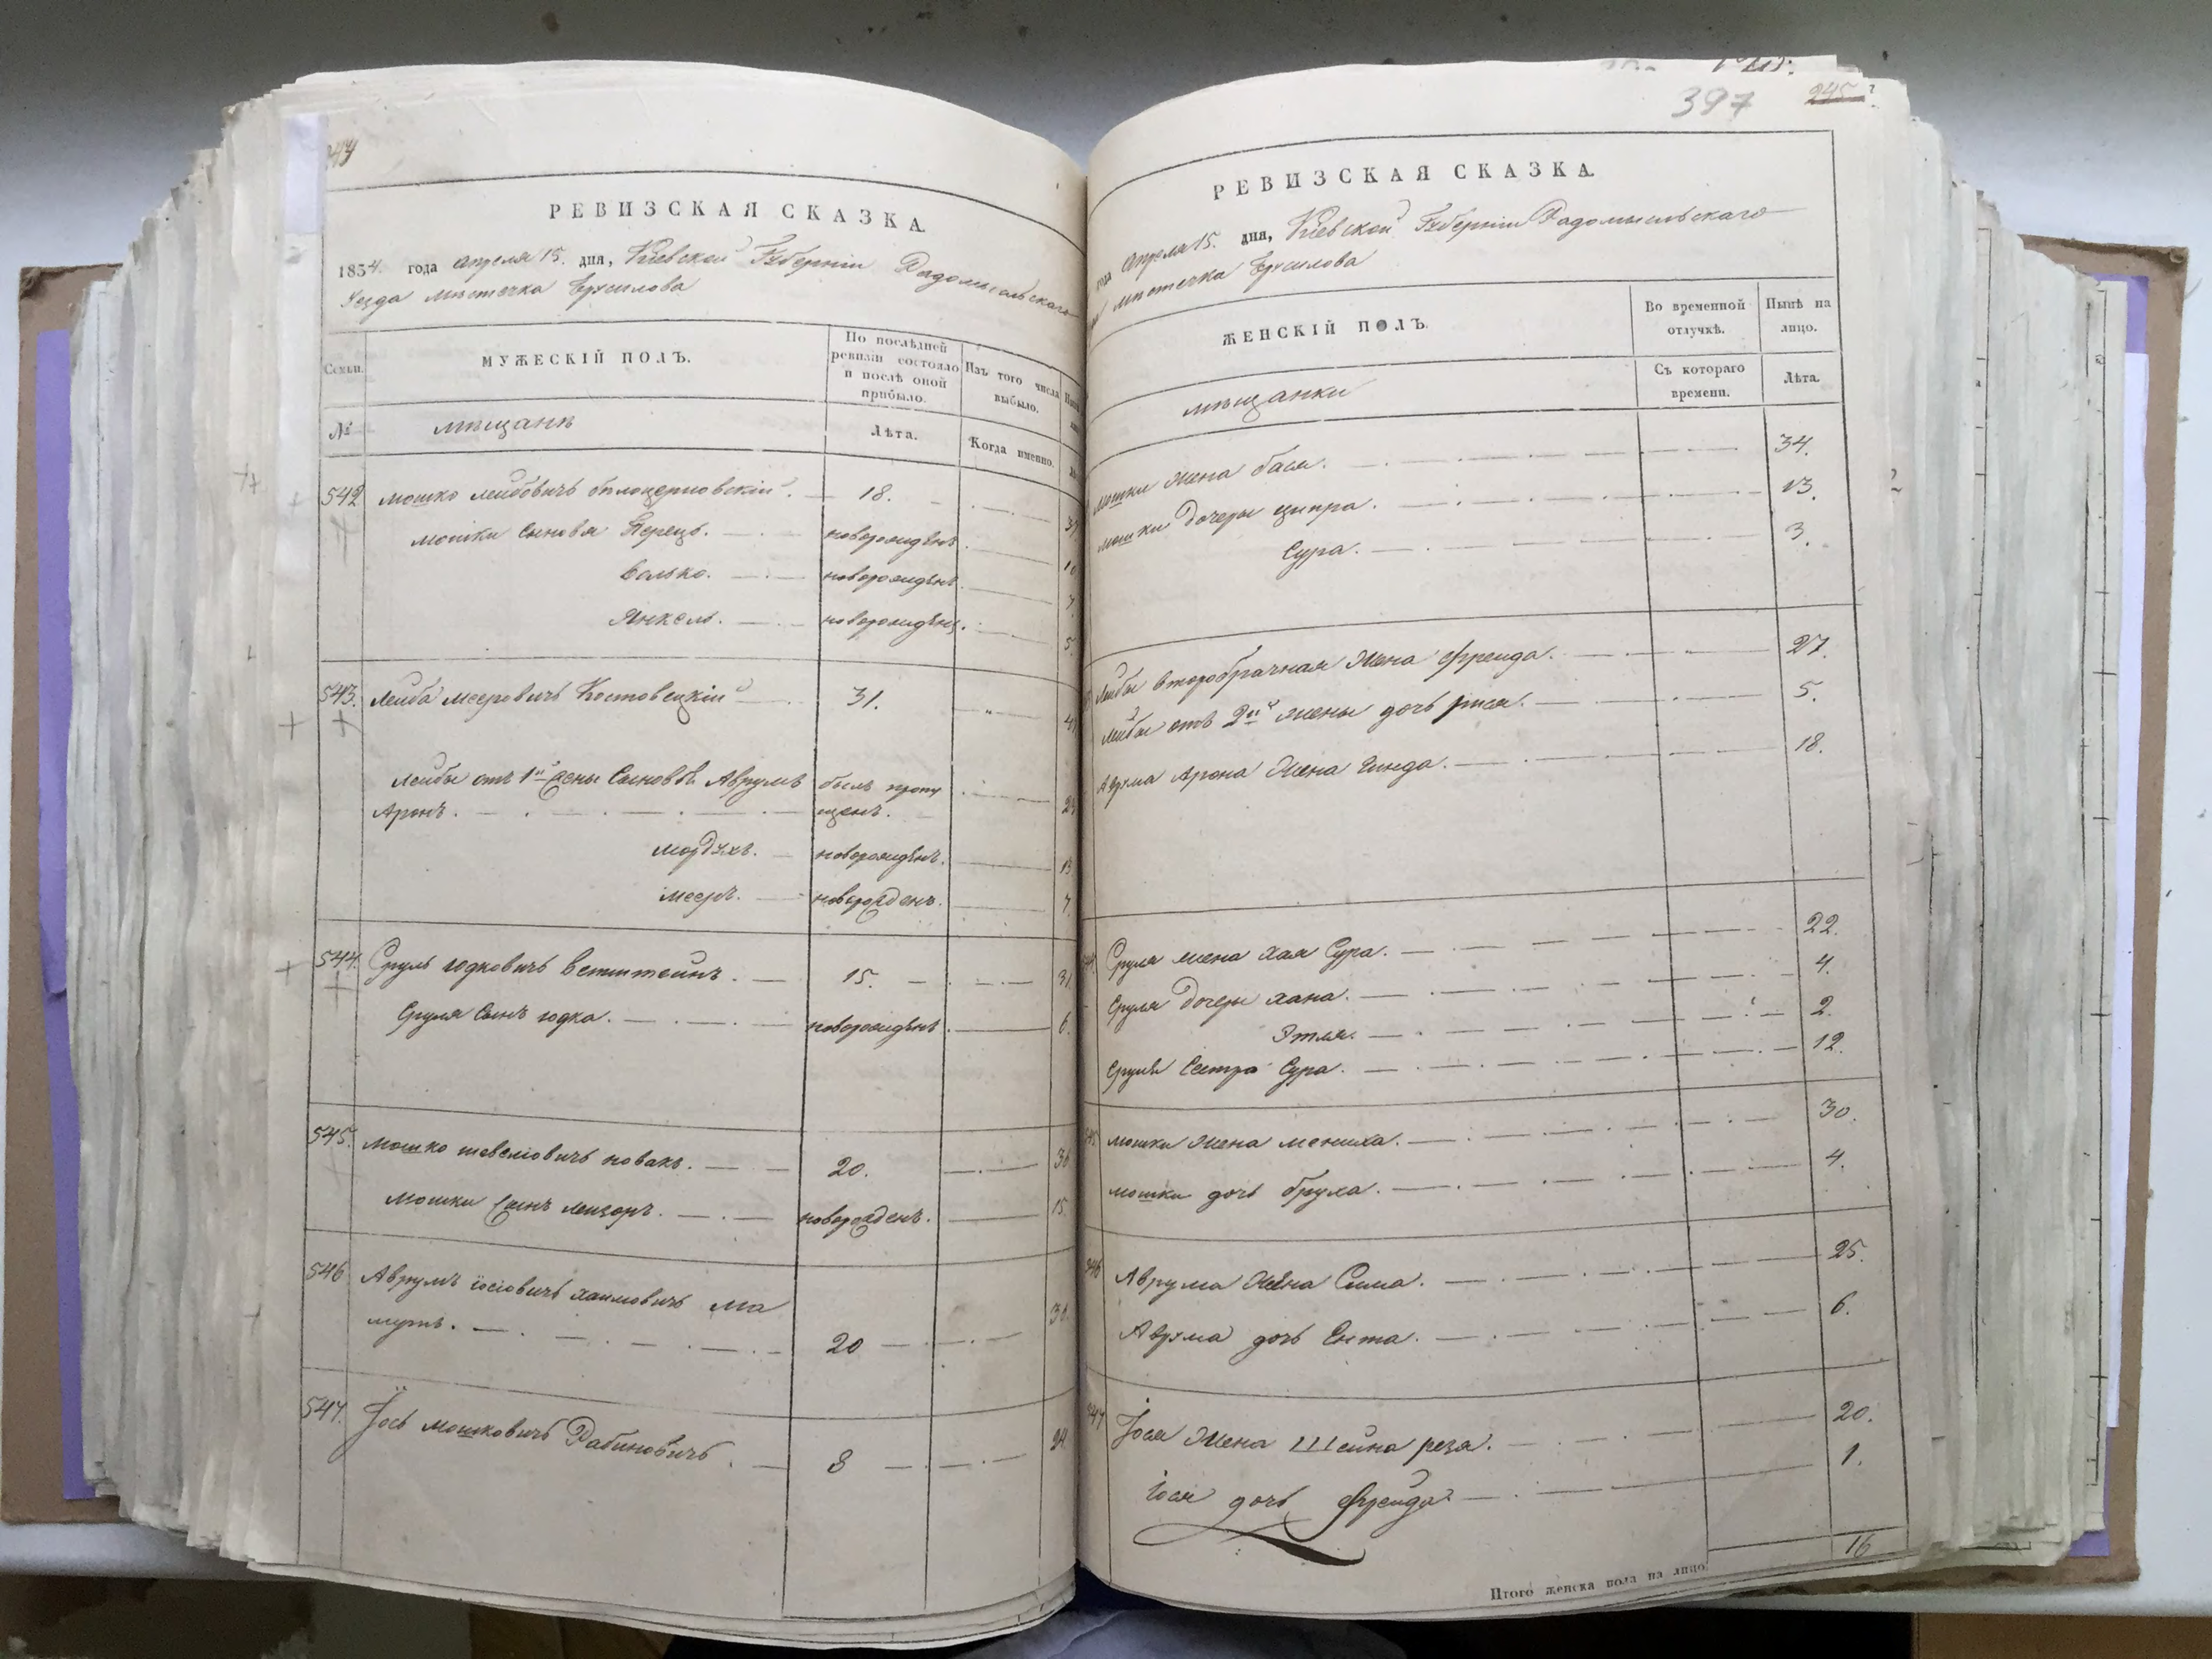 РЕВИЗСКАЯ СКАЗКА
1834. года апреля 15. дня, Кіевской Губерніи Радомысльскаго
Уезда местечка Брусилова
Семьи.
МУЖЕСКІЙ ПОЛЪ.
По послѣдней
ревизіи состояло
и послѣ оной
прибыло.
Изъ того числа
выбыло.
№
мещане
Лѣта.
Когда именно.
542 Мошко Лейбовичъ Белоцерковскій. 18.
Мошки сыновья Перецъ. новорожденъ.
Волько. новорожденъ.
Янкель. новорожденъ. 5.
543. Лейба Мееровичъ Костовецкій 31. „
Лейбы отъ 1й жены сыновья Аврумъ былъ пропу
Аронъ. щенъ.
Мордухъ. новорожденъ. 13
Мееръ. новорожденъ. 7.
544. Сруль Годковичъ Ветштейнъ. 15. 31.
Сруля сынъ Годка. новорожденъ. 6.
545. Мошко Шевелювичъ Новакъ. 20. 36
Мошки сынъ Лейзоръ. новорожденъ. 15.
546 Аврумъ Іосіовичъ Хаимовичъ Ма
мутъ. 20
547. Іось Мошковичъ Рабиновичъ. 8 24.
397 245
РЕВИЗСКАЯ СКАЗКА.
года апреля 15. дня, Кіевской Губерніи Радомысльскаго
местечка Брусилова
ЖЕНСКІЙ ПОЛЪ.
Во временной
отлучкѣ.
Нынѣ на
лицо.
мещанки
Съ котораго
времени.
Лѣта.
Мошки жена Бася. 34.
Мошки дочери Ципра. 13.
Сура. 3.
Лейбы второбрачная жена Фрейда. 27.
Лейбы отъ 2й жены дочь Рися. 5.
Аврума Арона жена Гинда. 18.
Сруля жена Хая Сура. 22.
Сруля дочери Хана. 4.
Этля. 2.
Сруля сестра Сура. 12.
Мошки жена Мениха. 30.
Мошки дочь Бруха. 4.
546 Аврума жена Сима. 25.
Аврума дочь Ента. 6.
547 Іося жена Шейна Реза. 20.
Іося дочь Фрейда. 1.
Итого женска пола на лицо. 16